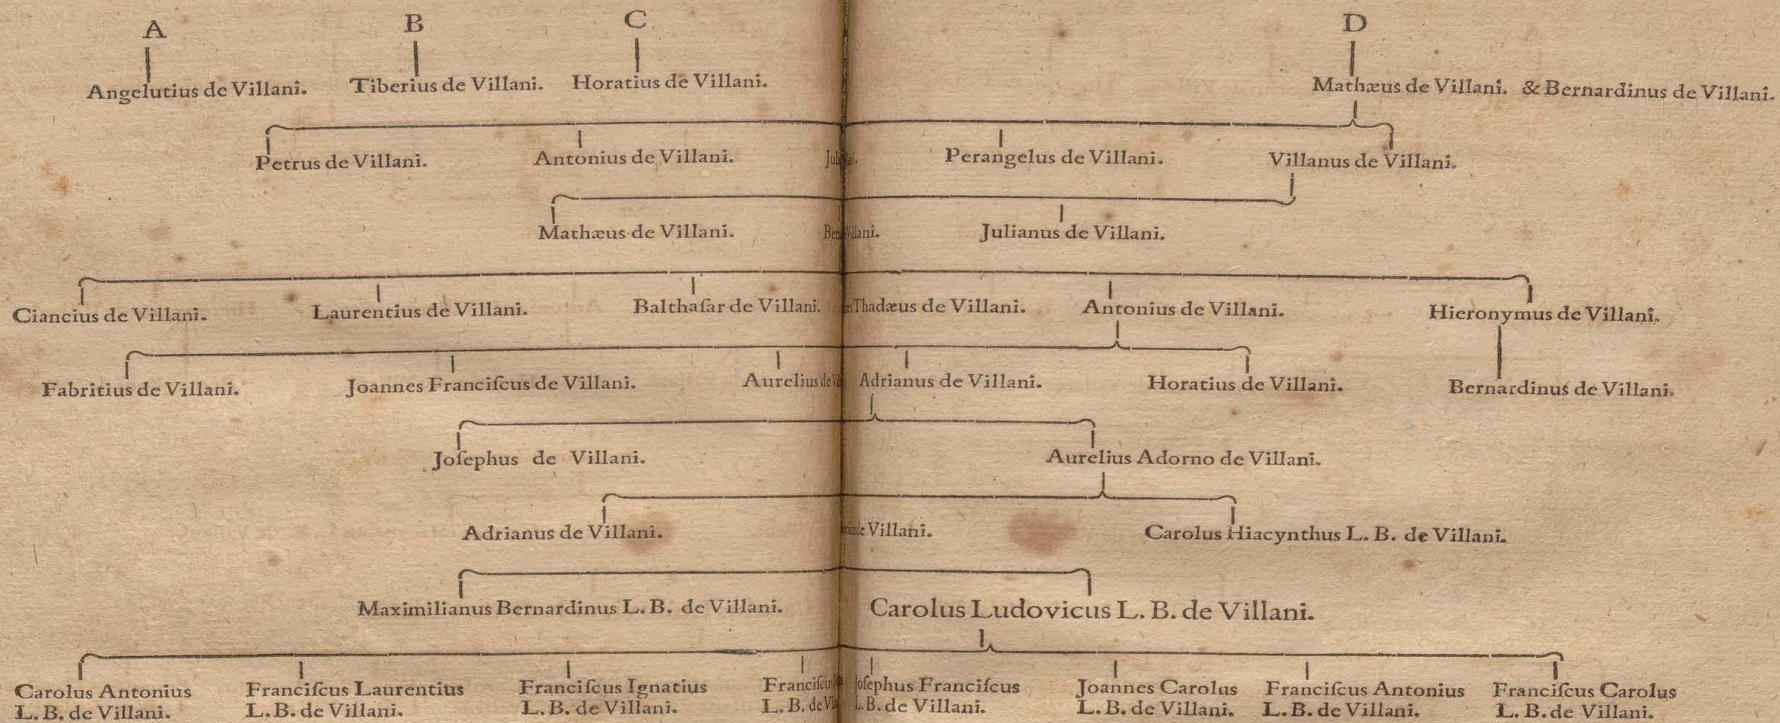 A B C D
Angelutius de Villani. Tiberius de Villani. Horatius de Villani. Mathæus de Villani. & Bernardinus de Villani.
Petrus de Villani. Antonius de Villani. Perangelus de Villani. Villanus de Villani.
Mathæus de Villani. Villani. Julianus de Villani.
Ciancius de Villani. Laurentius de Villani. Balthaſar de Villani. Thadæus de Villani. Antonius de Villani. Hieronymus de Villani.
Fabritius de Villani. Joannes Franciſcus de Villani. Aurelius de Adrianus de Villani. Horatius de Villani. Bernardinus de Villani.
Joſephus de Villani. Aurelius Adorno de Villani.
Adrianus de Villani. de Villani. Carolus Hiacynthus L. B. de Villani.
Maximilianus Bernardinus L. B. de Villani. Carolus Ludovicus L. B. de Villani.
Carolus Antonius Franciſcus Laurentius Franciſcus Ignatius Joſephus Franciſcus Joannes Carolus Franciſcus Antonius Franciſcus Carolus
L. B. de Villani. L. B. de Villani. L. B. de Villani. L. B. de L. B. de Villani. L. B. de Villani. L. B. de Villani. L. B. de Villani.